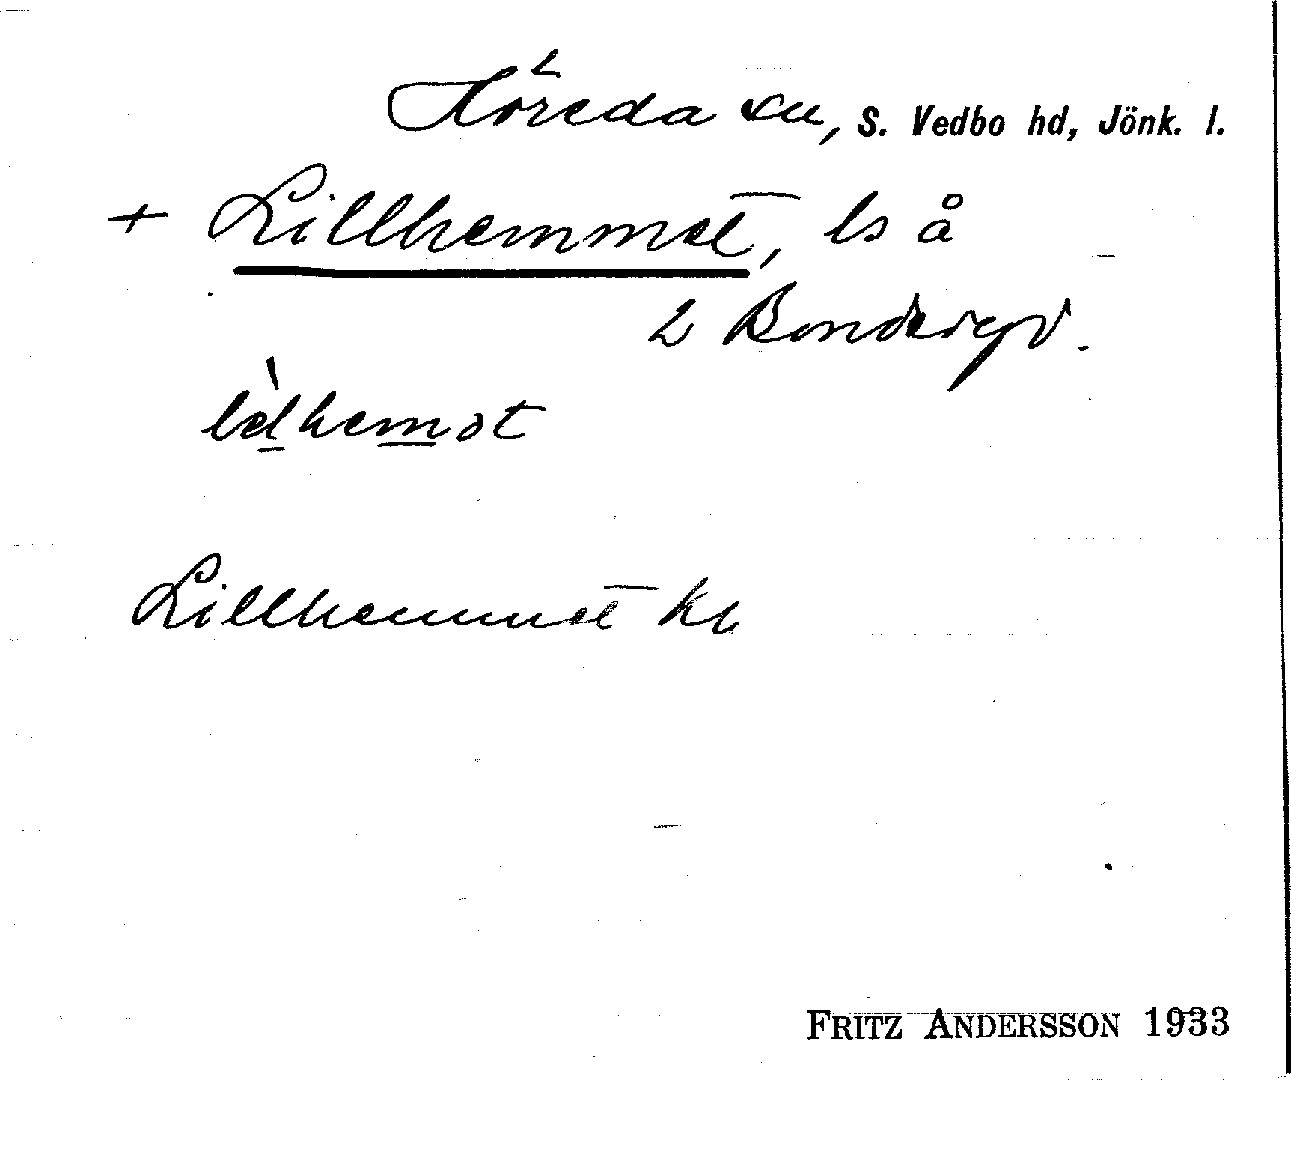 Höreda sn, S. Vedbo hd, Jönk. l.
+ Lillhemmet, ls å
2 Bonderyd.
hemət
Lillhemmet kb
FRITZ ANDERSSON 1933